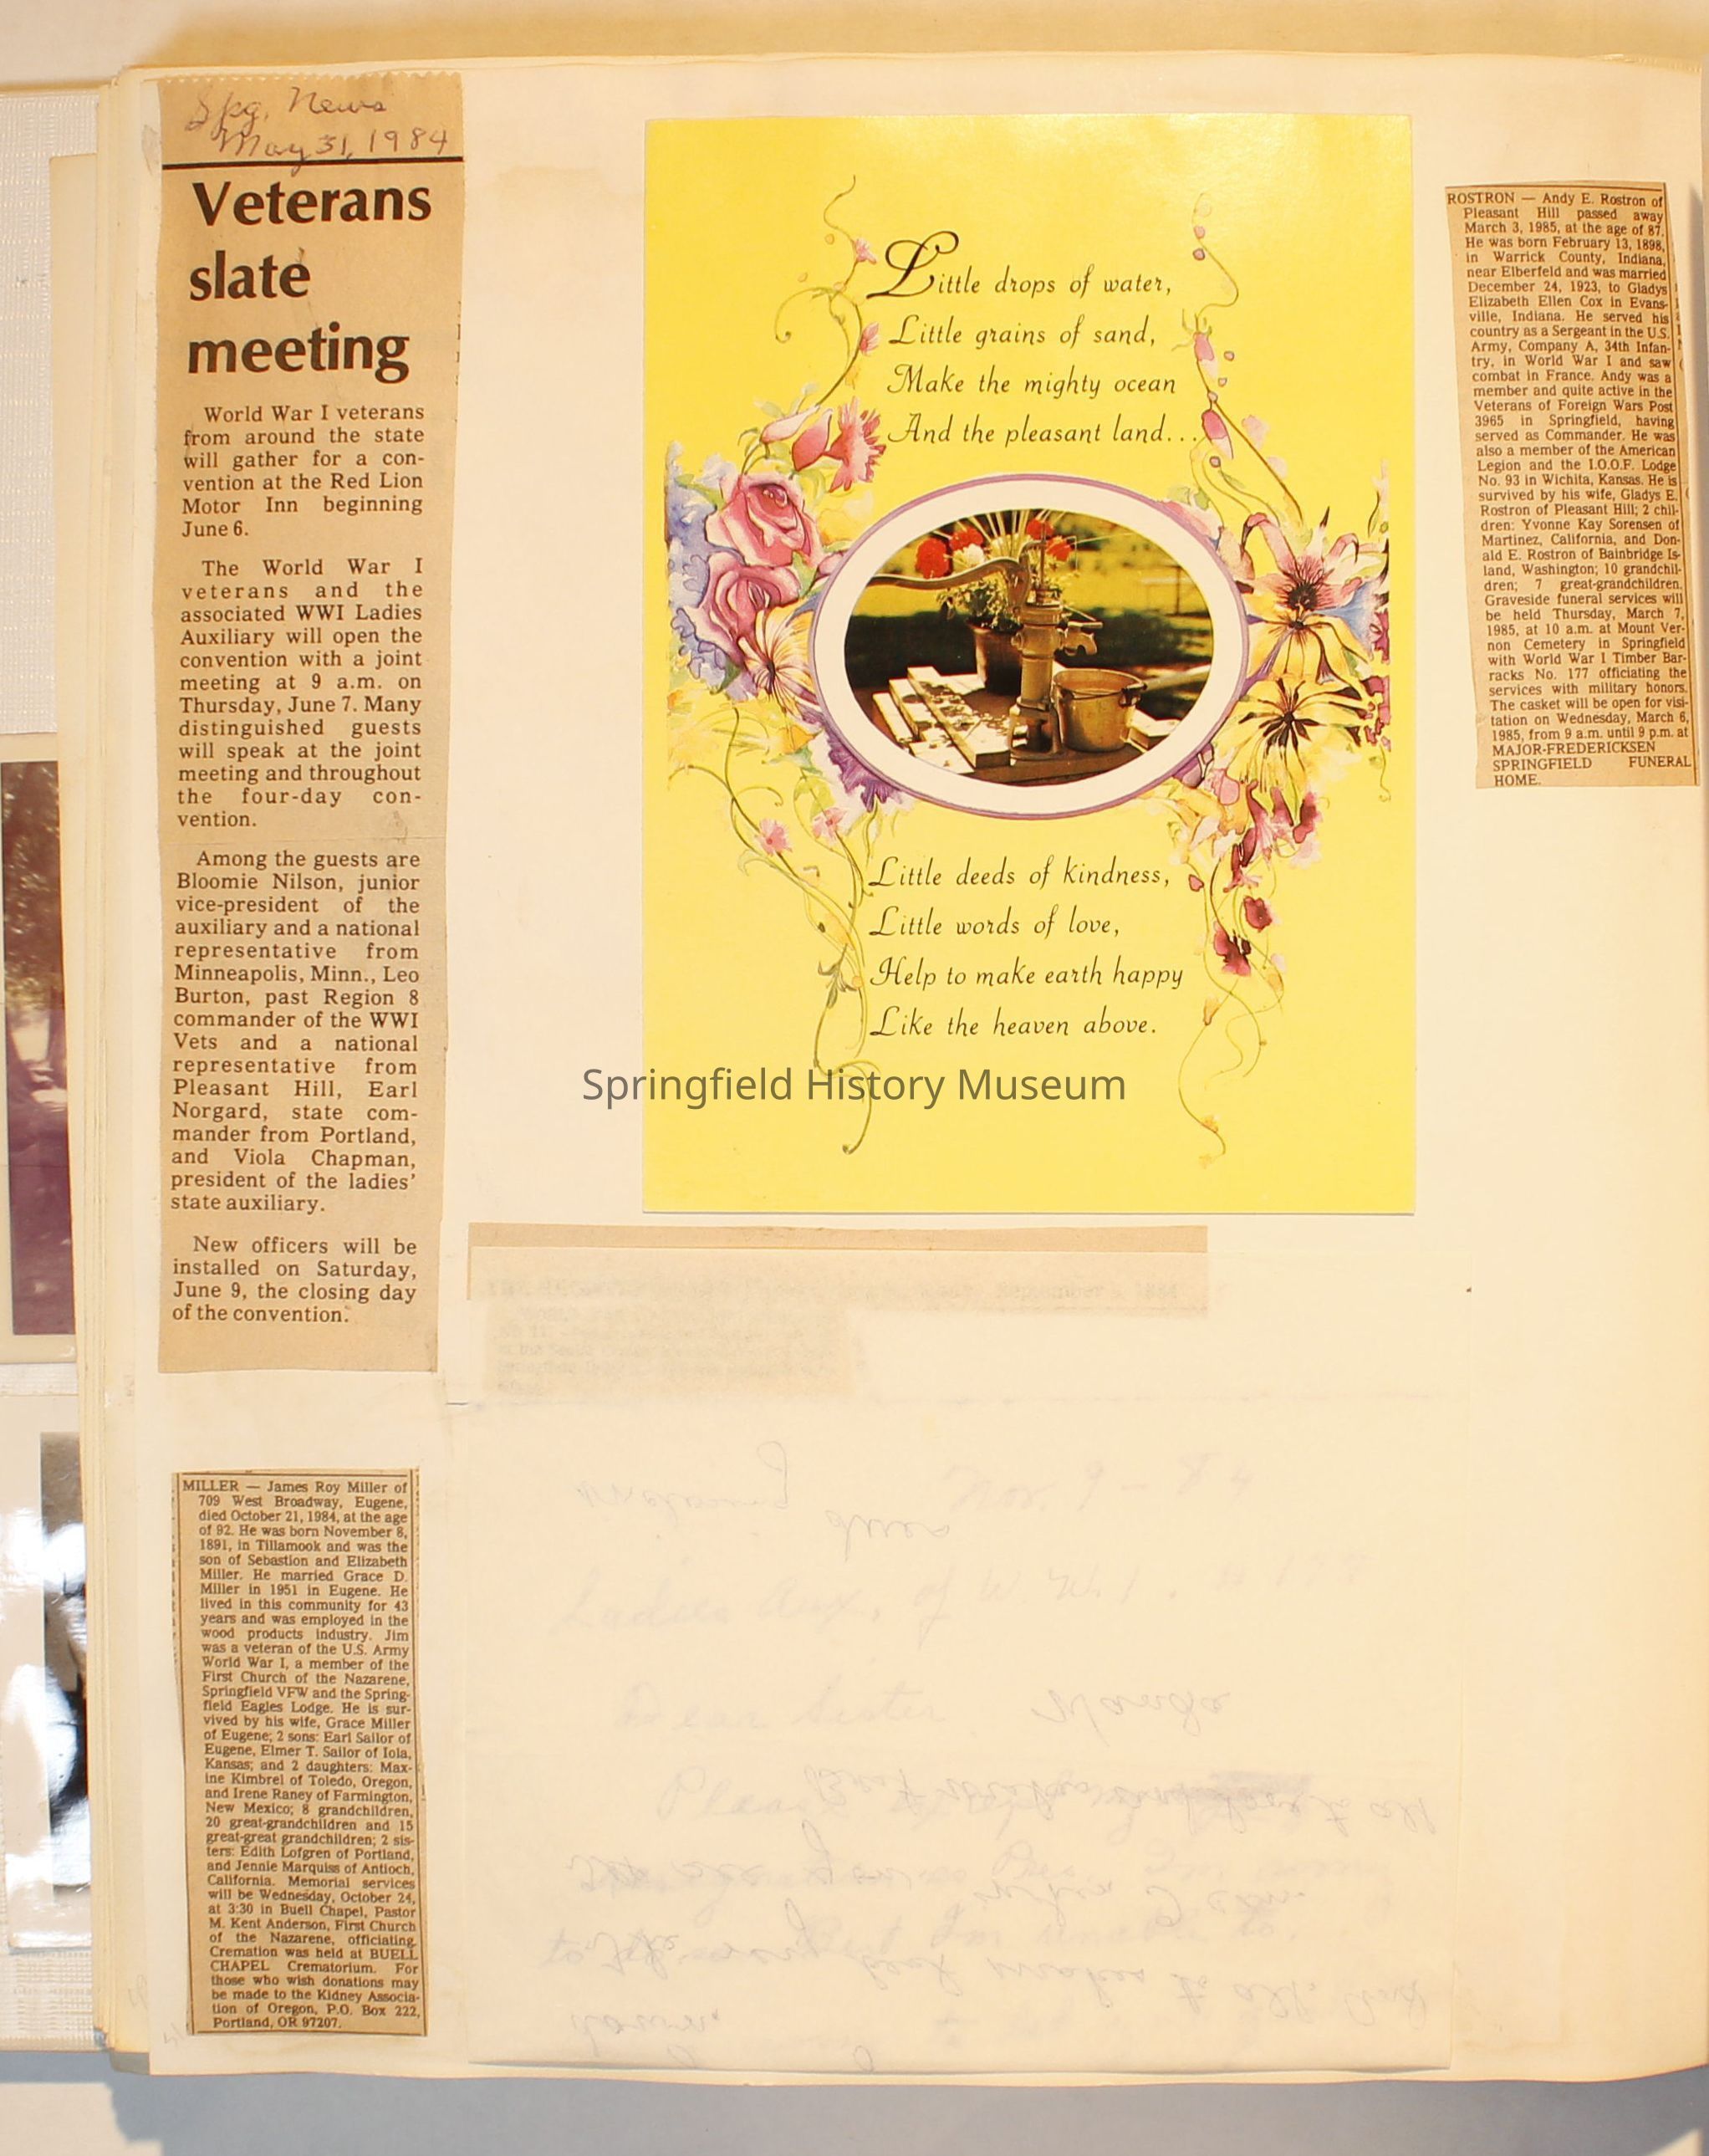 Spg. News
May 31, 1984
Veterans
slate
meeting
World War I veterans
from around the state
will gather for a con-
vention at the Red Lion
Motor Inn beginning
June 6.
The World War I
veterans and the
associated WWI Ladies
Auxiliary will open the
convention with a joint
meeting at 9 a.m. on
Thursday, June 7. Many
distinguished guests
will speak at the joint
meeting and throughout
the four-day con-
vention.
Among the guests are
Bloomie Nilson, junior
vice-president of the
auxiliary and a national
representative from
Minneapolis, Minn., Leo
Burton, past Region 8
commander of the WWI
Vets and a national
representative from
Pleasant Hill, Earl
Norgard, state com-
mander from Portland,
and Viola Chapman,
president of the ladies'
state auxiliary.
New officers will be
installed on Saturday,
June 9, the closing day
of the convention.
MILLER — James Roy Miller of
709 West Broadway, Eugene,
died October 21, 1984, at the age
of 92. He was born November 8,
1891, in Tillamook and was the
son of Sebastion and Elizabeth
Miller. He married Grace D.
Miller in 1951 in Eugene. He
lived in this community for 43
years and was employed in the
wood products industry. Jim
was a veteran of the U.S. Army
World War I, a member of the
First Church of the Nazarene,
Springfield VFW and the Spring-
field Eagles Lodge. He is sur-
vived by his wife, Grace Miller
of Eugene; 2 sons: Earl Sailor of
Eugene, Elmer T. Sailor of Iola,
Kansas; and 2 daughters: Max-
ine Kimbrel of Toledo, Oregon,
and Irene Raney of Farmington,
New Mexico; 8 grandchildren,
20 great-grandchildren and 15
great-great grandchildren; 2 sis-
ters: Edith Lofgren of Portland,
and Jennie Marquiss of Antioch,
California. Memorial services
will be Wednesday, October 24,
at 3:30 in Buell Chapel, Pastor
M. Kent Anderson, First Church
of the Nazarene, officiating.
Cremation was held at BUELL
CHAPEL Crematorium. For
those who wish donations may
be made to the Kidney Associa-
tion of Oregon, P.O. Box 222,
Portland, OR 97207.
Little drops of water,
Little grains of sand,
Make the mighty ocean
And the pleasant land...
Little deeds of kindness,
Little words of love,
Help to make earth happy
Like the heaven above.
Springfield History Museum
dues
Ladies Aux. of W.W.1.
Wanda
ROSTRON — Andy E. Rostron of
Pleasant Hill passed away
March 3, 1985, at the age of 87.
He was born February 13, 1898,
in Warrick County, Indiana,
near Elberfeld and was married
December 24, 1923, to Gladys
Elizabeth Ellen Cox in Evans-
ville, Indiana. He served his
country as a Sergeant in the U.S.
Army, Company A, 34th Infan-
try, in World War I and saw
combat in France. Andy was a
member and quite active in the
Veterans of Foreign Wars Post
3965 in Springfield, having
served as Commander. He was
also a member of the American
Legion and the I.O.O.F. Lodge
No. 93 in Wichita, Kansas. He is
survived by his wife, Gladys E.
Rostron of Pleasant Hill; 2 chil-
dren: Yvonne Kay Sorensen of
Martinez, California, and Don-
ald E. Rostron of Bainbridge Is-
land, Washington; 10 grandchil-
dren; 7 great-grandchildren.
Graveside funeral services will
be held Thursday, March 7,
1985, at 10 a.m. at Mount Ver-
non Cemetery in Springfield
with World War I Timber Bar-
racks No. 177 officiating the
services with military honors.
The casket will be open for visi-
tation on Wednesday, March 6,
1985, from 9 a.m. until 9 p.m. at
MAJOR-FREDERICKSEN
SPRINGFIELD FUNERAL
HOME.